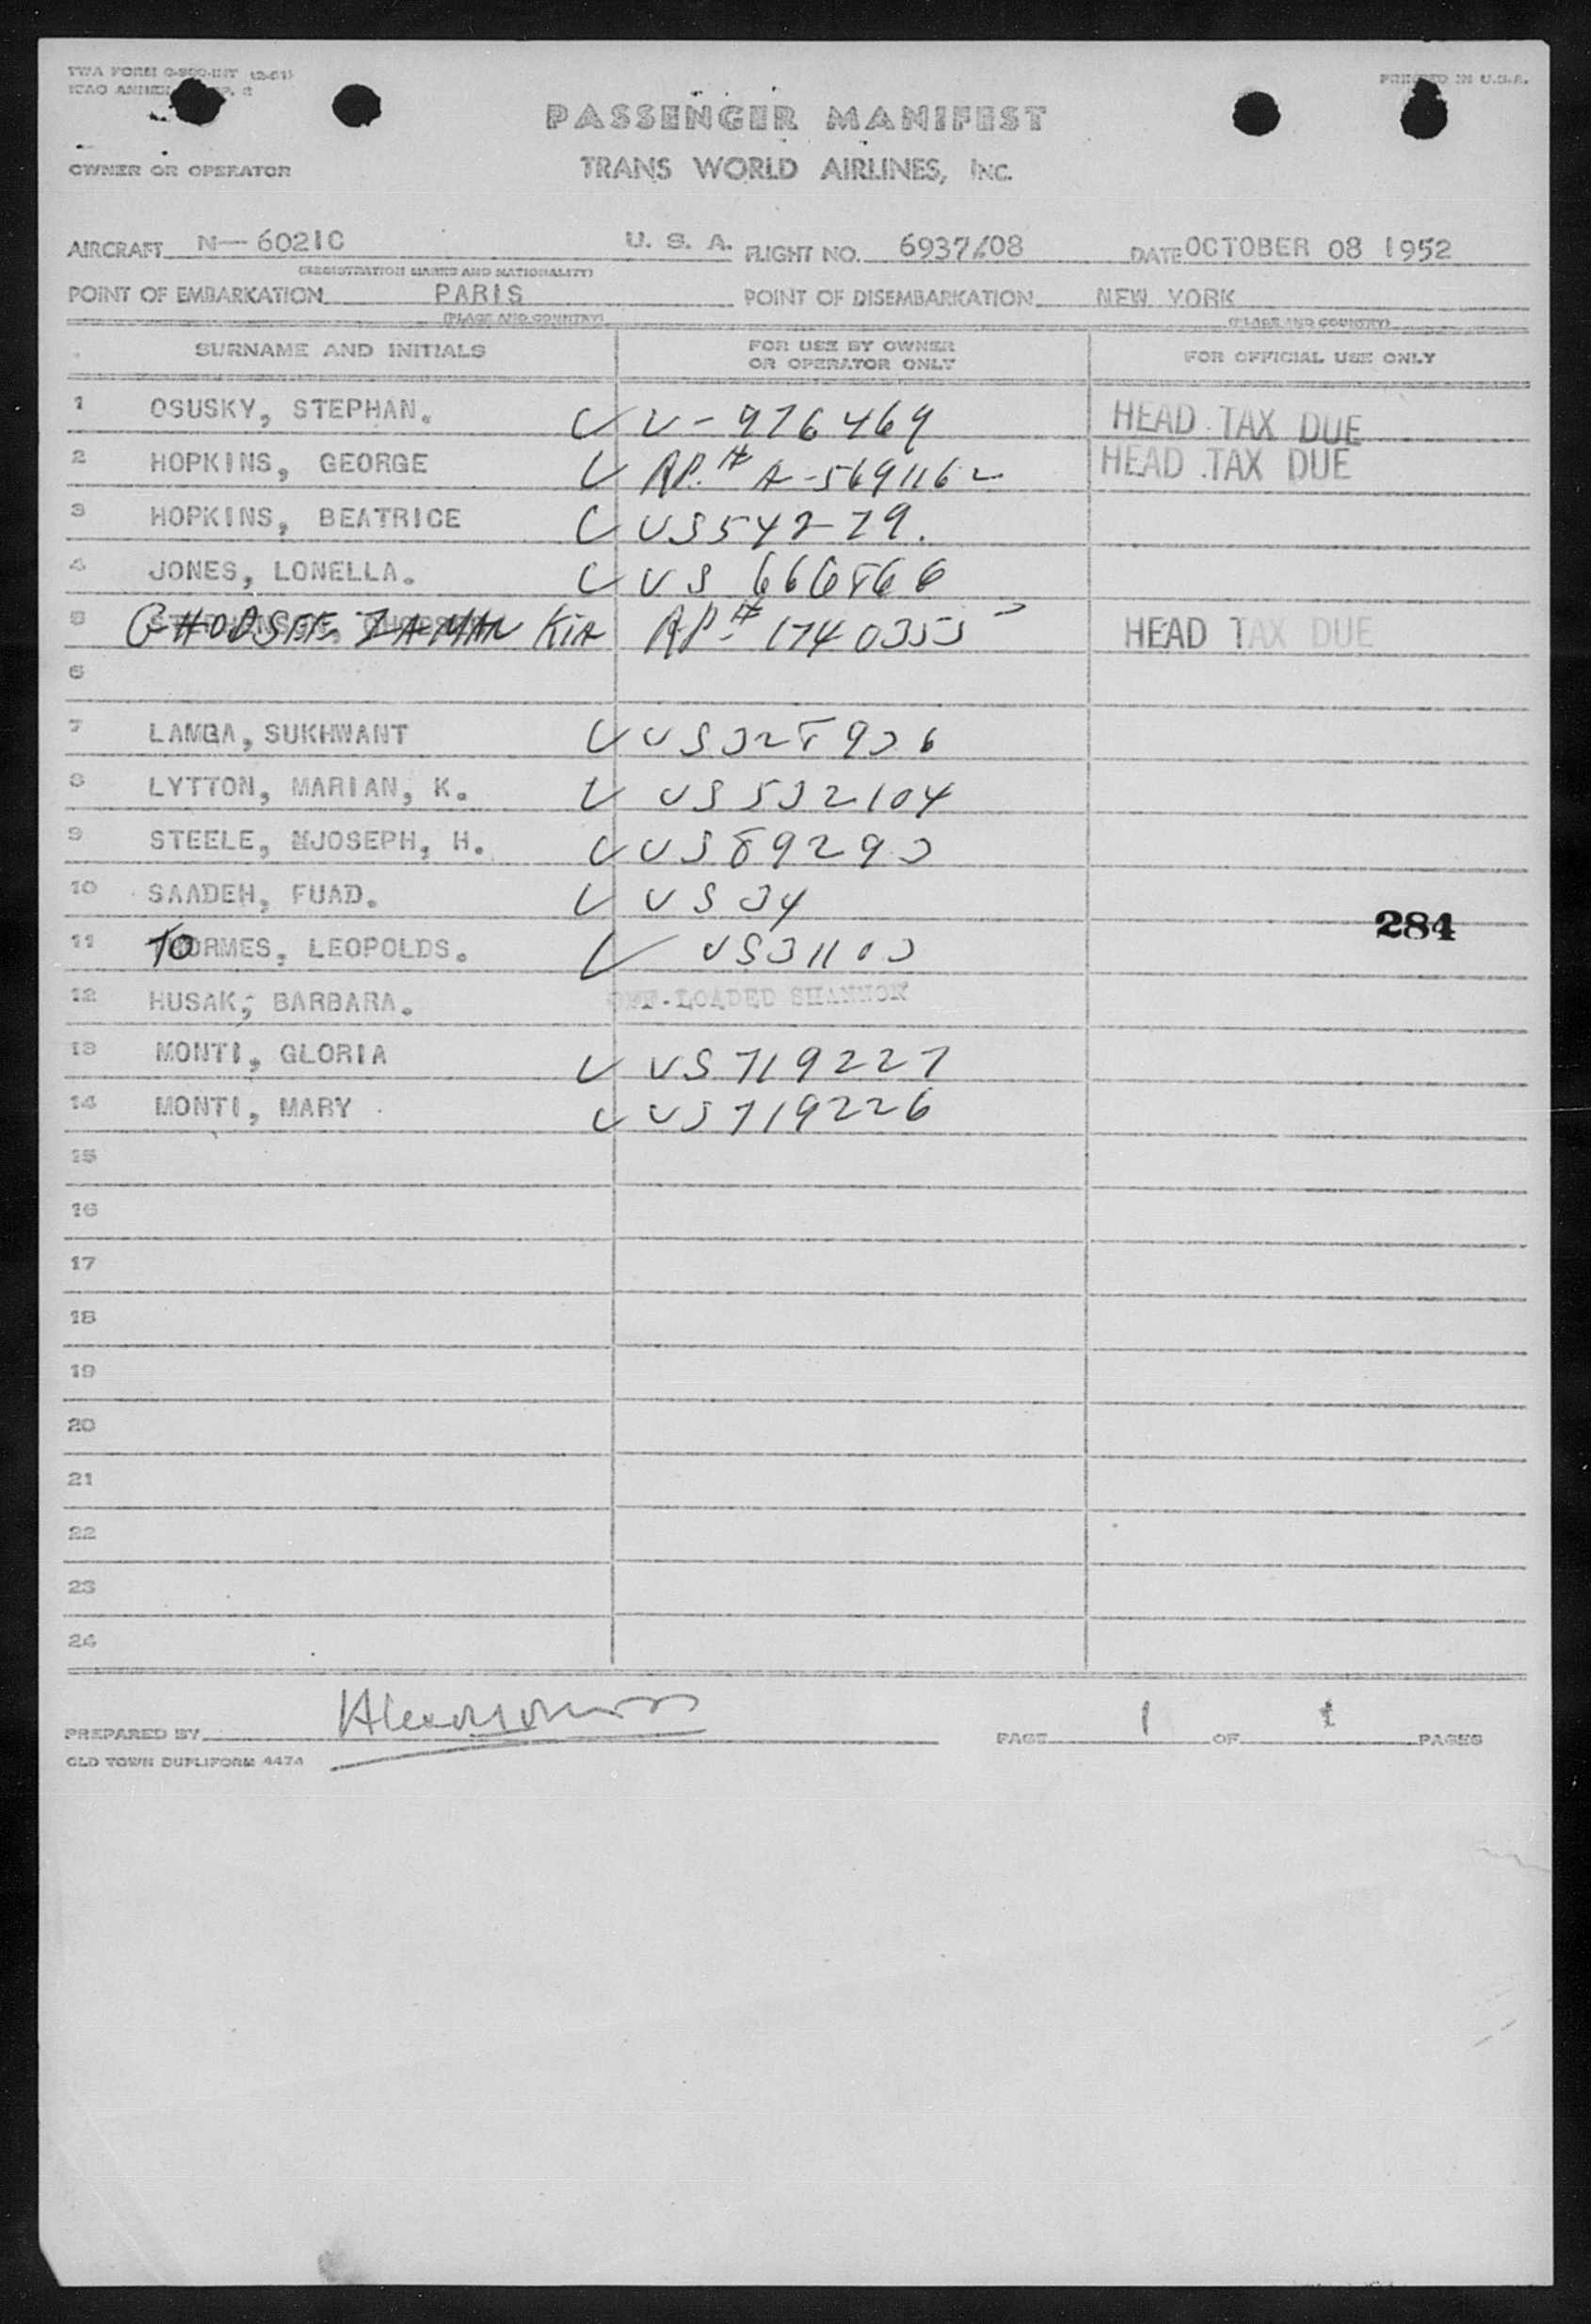 TWA FORM O-800-INT (2-51)
PRINTED IN U.S.A.
ICAO ANNEX
PASSENGER MANIFEST
OWNER OR OPERATOR
TRANS WORLD AIRLINES, INC.
AIRCRAFT N—6021C U. S. A. FLIGHT NO. 6937/08 DATE OCTOBER 08 1952
(REGISTRATION MARKS AND NATIONALITY)
POINT OF EMBARKATION PARIS POINT OF DISEMBARKATION NEW YORK
(PLACE AND COUNTRY) (PLACE AND COUNTRY)
SURNAME AND INITIALS FOR USE BY OWNER OR OPERATOR ONLY FOR OFFICIAL USE ONLY
1 OSUSKY, STEPHAN. V-976469 HEAD TAX DUE
2 HOPKINS, GEORGE RP.# A-5691162 HEAD TAX DUE
3 HOPKINS, BEATRICE US 54279.
4 JONES, LONELLA. US 666866
5 GHODSEE ZAMAN KIA RP.# 1740355 HEAD TAX DUE
6
7 LAMBA, SUKHWANT US 328936
8 LYTTON, MARIAN, K. US 532104
9 STEELE, MJOSEPH, H. US 89293
10 SAADEH, FUAD. US 34
284
11 TOORMES, LEOPOLDS. US 31103
12 HUSAK, BARBARA. OFF-LOADED SHANNON
13 MONTI, GLORIA US 719227
14 MONTI, MARY US 719226
15
16
17
18
19
20
21
22
23
24
PREPARED BY PAGE 1 OF 1 PAGES
OLD TOWN DUPLIFORM 4474